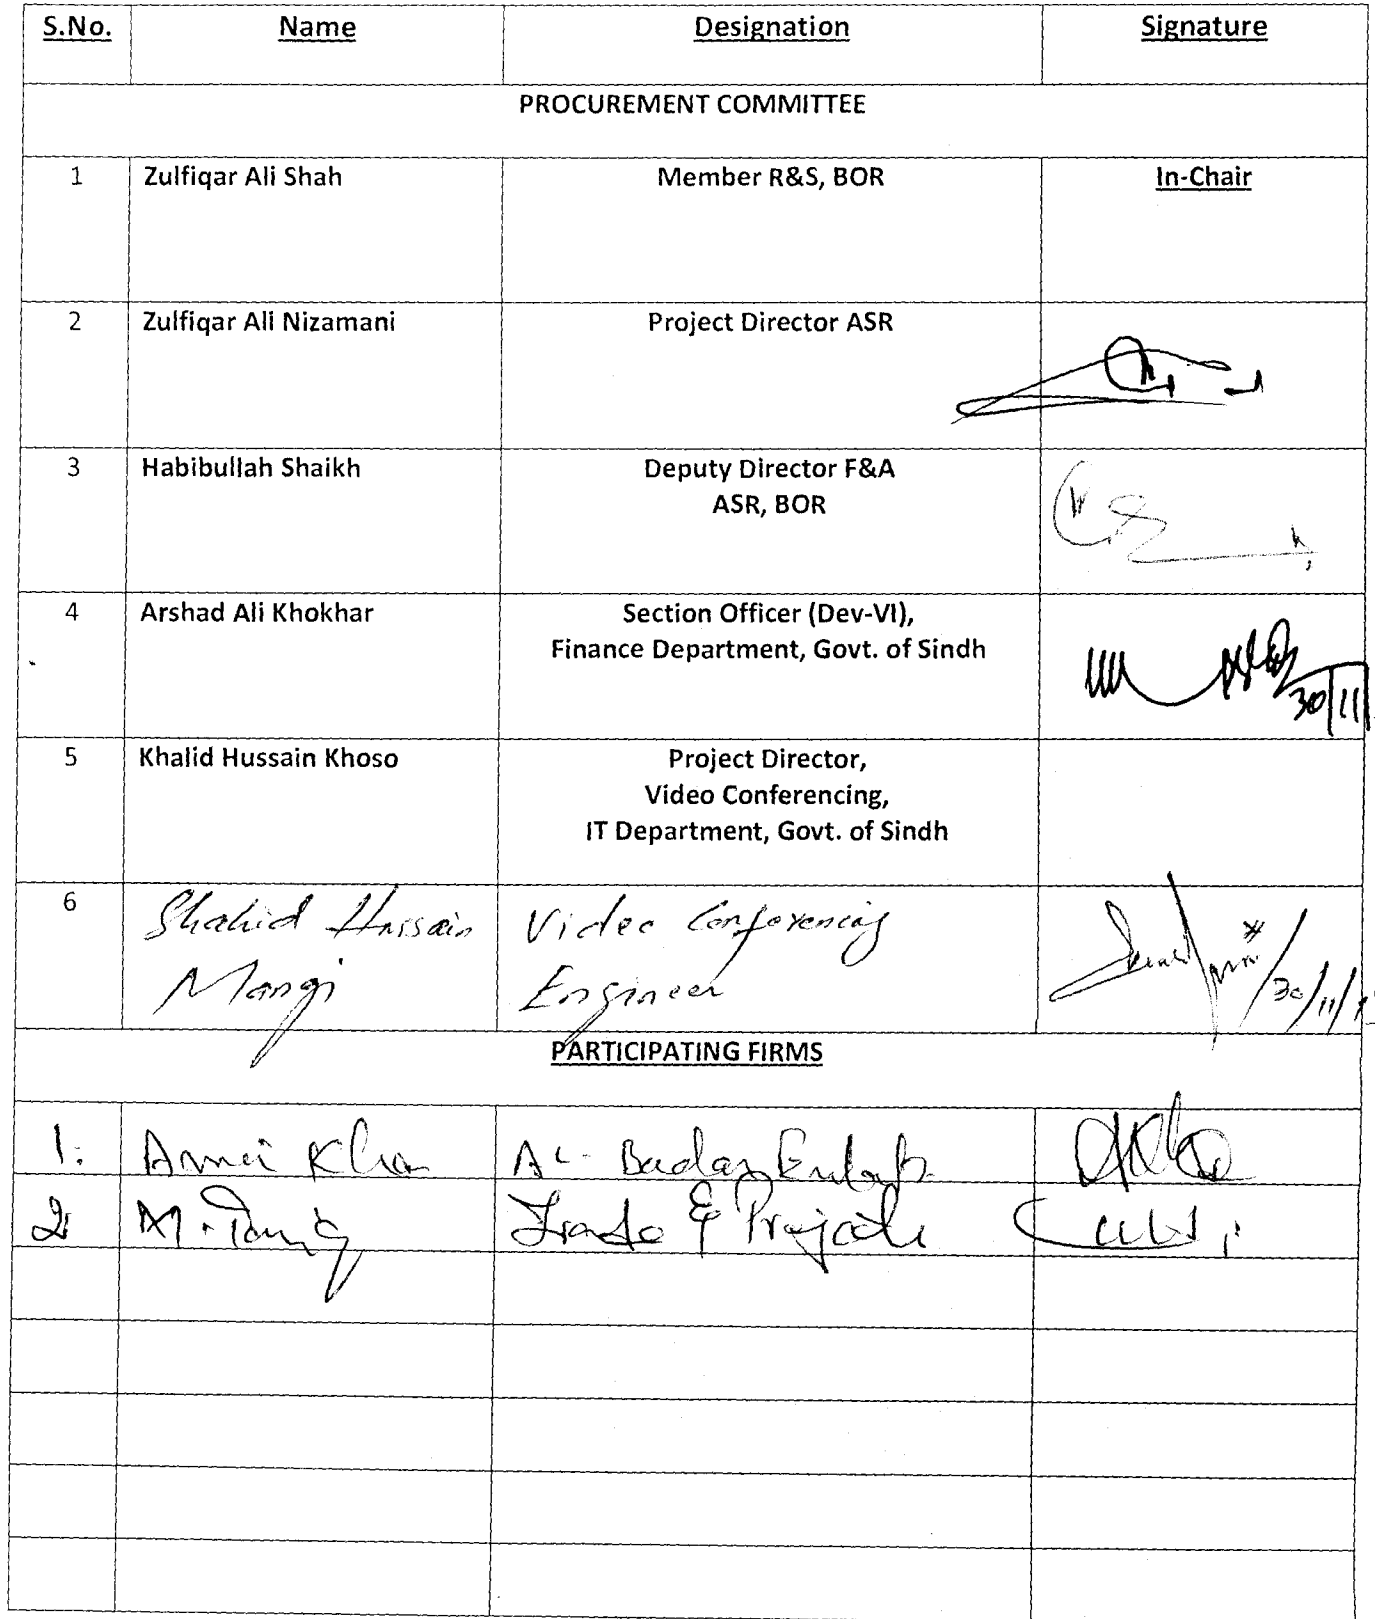 S.No. Name Designation Signature
PROCUREMENT COMMITTEE
1 Zulfiqar Ali Shah Member R&S, BOR In-Chair
2 Zulfiqar Ali Nizamani Project Director ASR
3 Habibullah Shaikh Deputy Director F&A
ASR, BOR
4 Arshad Ali Khokhar Section Officer (Dev-VI),
Finance Department, Govt. of Sindh
30/11
5 Khalid Hussain Khoso Project Director,
Video Conferencing,
IT Department, Govt. of Sindh
6 Shahid Hussain Video Conferencing
Mangi Engineer 30/11/
PARTICIPATING FIRMS
1. Khan AL- Badar
2 M. Tariq Trade & Projects